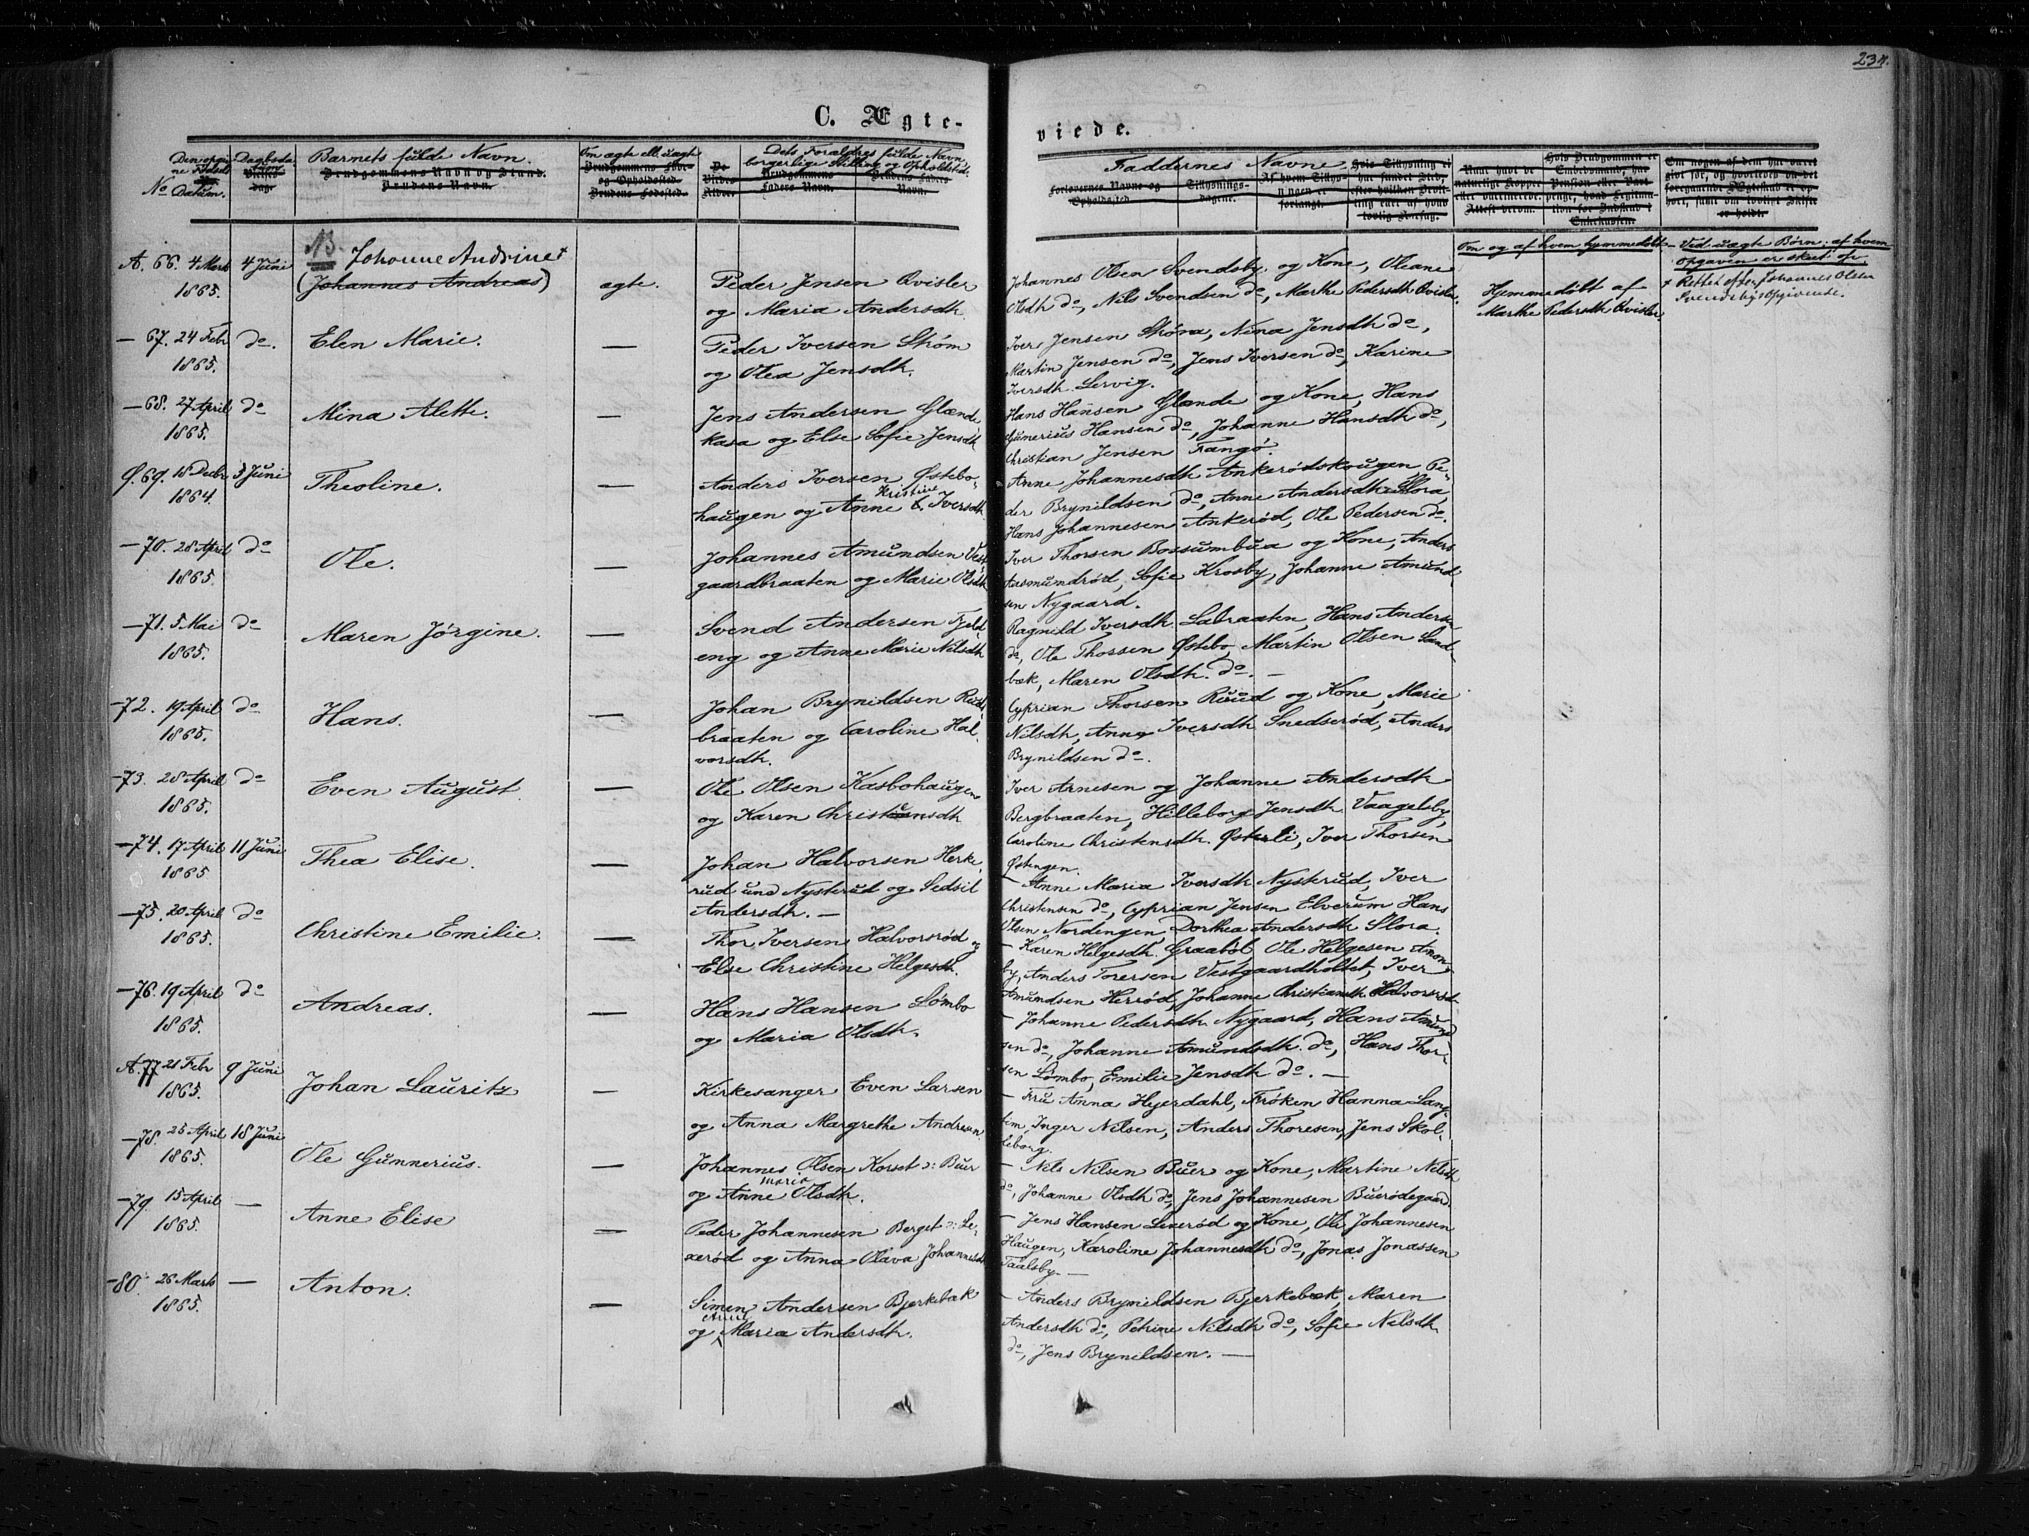 234.
C. Ægte-
viede.
Barnets fulde Navn.
Faddernes Navne
Om og af hvem hjemmedøbt
Ved uægte Børn: af hvem
Opgaven er skeet ofv.
A. 66. 4 Marts 4 Juni NB. Johanne Andrine +
1865. (Johannes Andreas) ægte. Peder Jensen Qvisler
og Maria Andersdh.
Johannes Olsen Svendsby og Kone, Oleane
Olsdh do, Nils Svendsen do, Marthe Pedersdh Qvisler.
Hjemmedøbt af
Marthe Pedersdh Qvisler.
+ Rettet efter Johannes Olsen
Svendsbys Opgivende.
— 67. 24 Febr do. Elen Marie. — Peder Iversen Skøm
1865. og Olea Jensdh.
Iver Jensen Skøra, Nina Jensdh do,
Martin Jensen do, Jens Iversen do, Karine
Iversdh Lervig.
— 68. 27 April do Mina Alette. — Jens Andersen Glænde
1865. kasa og Else Sofie Jensdh
Hans Hansen Glænde og Kone, Hans
Gunerius Hansen do, Johanne Hansdh do,
Christian Jensen Tangø.
Ø. 69. 18 Decbr 3 Juni Theoline. — Anders Iversen Østebo-
1864. haugen og Anne Kristine Iversdh.
Anne Johannesdh Ankerødskougen, Pe-
der Brynildsen do, Anne Andersdh Slora,
Hans Johannesen Ankerød, Ole Pedersen do.
— 70. 28 April do Ole. — Johannes Amundsen Vest
1865. gaardbraaten og Marie Olsdh
Iver Thorsen Bossumbua og Kone, Anders
Aasmundrød, Sofie Krosby, Johanne Amund
sen Nygaard.
— 71. 5 Mai do Maren Jørgine. — Svend Andersen Fjeld-
1865. eng og Anne Marie Nilsdh
Ragnild Iversdh. Labraaten, Hans Anderse
do, Ole Thossen Østebo, Martin Olsen Sand-
bæk, Maren Olsdh. do. —
— 72. 19 April do Hans. — Johan Brynildsen Ruds-
1865. braaten og Caroline Hal-
vorsdh.
Cyprian Thorsen Ruud og Kone, Marie
Nilsdh, Anne Iversdh Snedserød, Anders
Brynildsen do.
— 73. 28 April do Even August. — Ole Olsen Kasbohaugen
1865. og Karen Christensdh
Iver Arnesen og Johanne Andersdh
Bergbraaten, Hilleborg Jensdh Vaagelsby,
Caroline Christensdh. Østerli, Iver Thorsen
Østengen.
— 74. 17 April 11 Juni Thea Elise. — Johan Halvorsen Herke
1865 rud und Nystrud og Sedsil
Andersdh. —
— Anne Maria Iversdh Nystrud, Iver
Christensen do, Cyprian Jensen Elverum Hans
Olsen Nordengen Dorthea Andersdh Slora.
— 75. 20 April do Christine Emilie. — Thor Iversen Halvorsrød og
1865. Else Christine Helgesdh.
— Karen Helgesdh. Graabøl, Ole Helgesen Amon
by, Anders Torersen Vestgaardholtet, Iver
Amundsen Herrød, Johanne Christiansdh Halvorsrød
— 76. 19 April do Andreas. — Hans Hansen Lømbo
1865. og Maria Olsdh.
— Johanne Pedersdh Nygaard, Hans Amund
sen do, Johanne Amundsdh do, Hans Thor-
sen Lømbo, Emilie Jensdh do. —
A. 77 21 Febr 9 Juni Johan Lauritz — Kirkesanger Even Larsen
1865. og Anna Margrethe Andresen
— Fru Anna Hyerdahl, Frøken Hanna Lang-
eim, Inger Nilsen, Anders Thoresen, Jens Skol-
leborg.
— 78. 25 April 18 Juni Ole Gunnerius. — Johannes Olsen Korset ɔ: Buer
1865. og Anne Maria Olsdh.
— Nils Nilsen Buer og Kone, Martine Nilsdh
do, Johanne Olsdh do, Jens Johannesen Buerødegaard.
— 79 15 April — Anne Elise — Peder Johannesen Berget ɔ: Le-
1865. xerød og Anna Olava Johannesdh
— Jens Hansen Lexerød og Kone, Ole Johannesen
Haugen, Karoline Johannesdh do, Jonas Jonassen
Taalsby. —
— 80. 26 Marts — Anton. — Simen Andersen Bjerkebæk
1865. og Anne Maria Andersdh.
— Anders Brynildsen Bjerkebæk, Maren
Andersdh do, Petrine Nilsdh do, Sofie Nilsdh
do, Jens Brynildsen. —